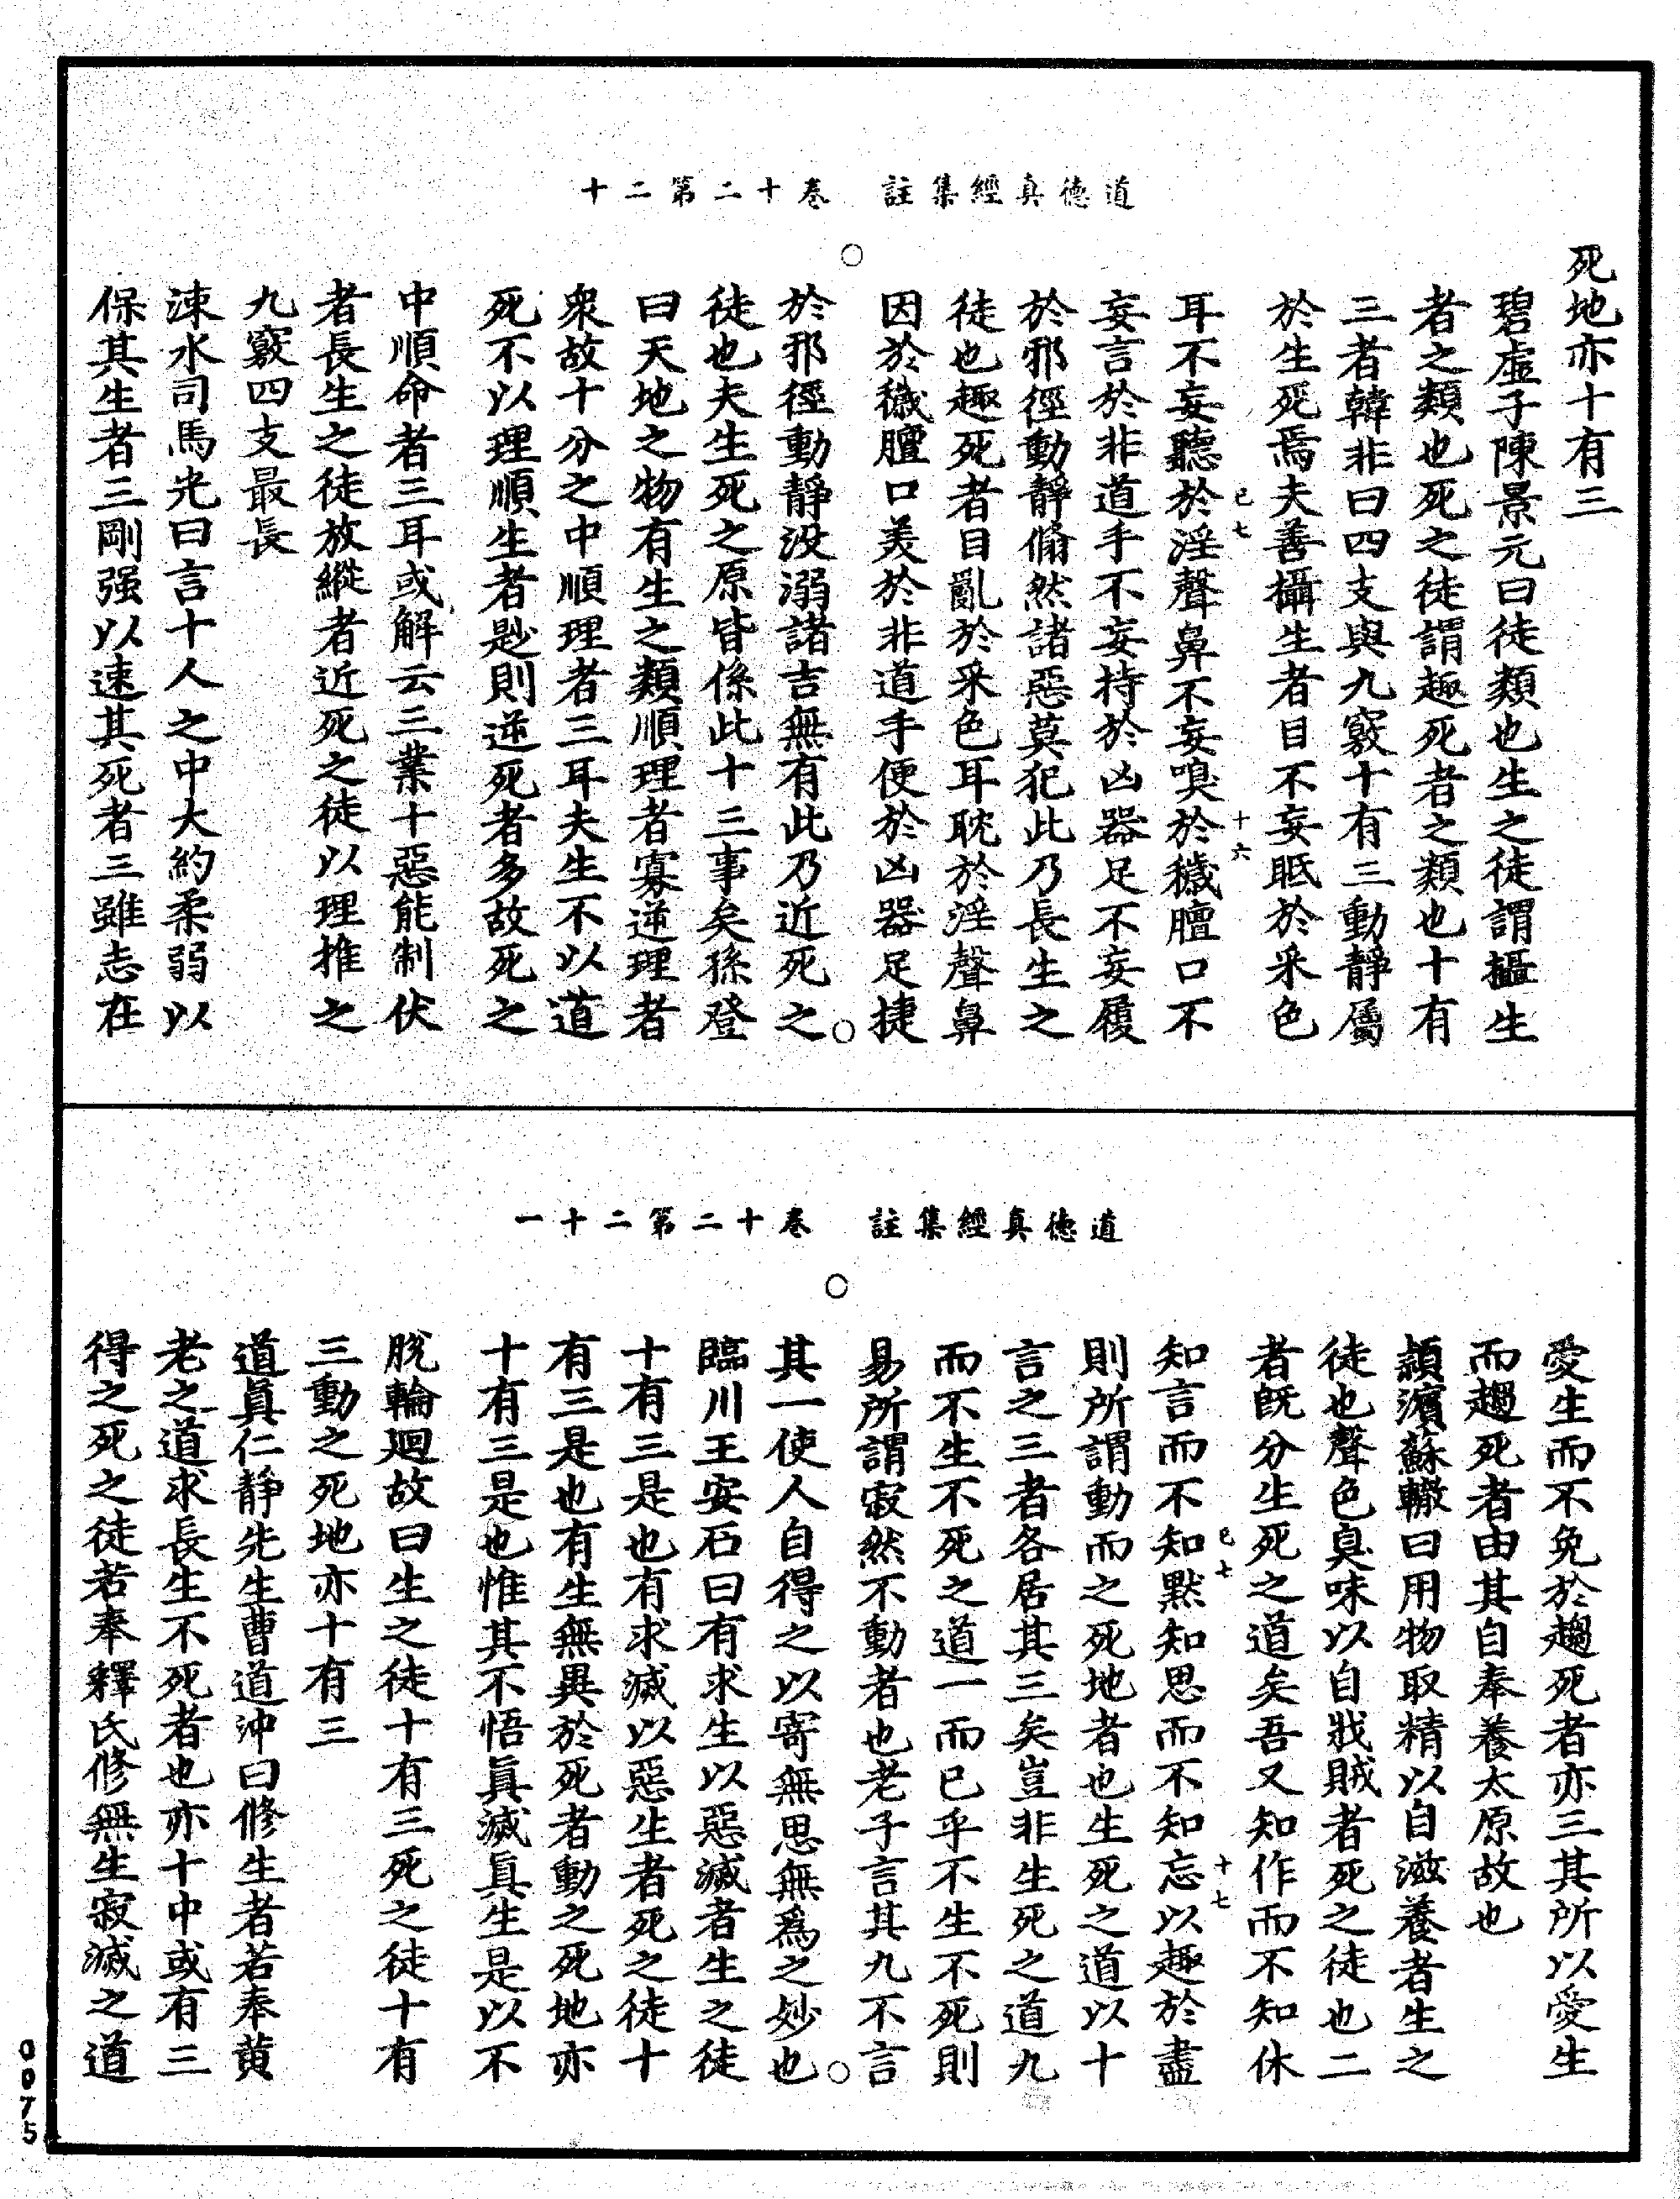 道德真經集註　卷十二第二十
死地亦十有三
碧虛子陳景元曰徒類也生之徒謂攝生
者之類也死之徒謂趣死者之類也十有
三者韓非曰四支與九竅十有三動靜屬
於生死焉夫善攝生者目不妄眂於釆色
已七　十六
耳不妄聽於淫聲鼻不妄嗅於穢膻口不
妄言於非道手不妄持於凶器足不妄履
於邪徑動靜翛然諸惡莫犯此乃長生之
徒也趣死者目亂於釆色耳耽於淫聲鼻
因於穢膻口美於非道手便於凶器足捷
於邪徑動靜沒溺諸吉無有此乃近死之
徒也夫生死之原皆係此十三事矣孫登
曰天地之物有生之類順理者寡逆理者
衆故十分之中順理者三耳夫生不以道
死不以理順生者尠則逆死者多故死之
中順命者三耳或解云三業十惡能制伏
者長生之徒放縱者近死之徒以理推之
九竅四支最長
涑水司馬光曰言十人之中大約柔弱以
保其生者三剛强以速其死者三雖志在
道德真經集註　卷十二第二十一
愛生而不免於趨死者亦三其所以愛生
而趨死者由其自奉養太原故也
潁濱蘇轍曰用物取精以自滋養者生之
徒也聲色臭味以自戕賊者死之徒也二
者既分生死之道矣吾又知作而不知休
已七　十七
知言而不知默知思而不知忘以趣於盡
則所謂動而之死地者也生死之道以十
言之三者各居其三矣豈非生死之道九
而不生不死之道一而已乎不生不死則
易所謂寂然不動者也老子言其九不言
其一使人自得之以寄無思無爲之妙也
臨川王安石曰有求生以惡滅者生之徒
十有三是也有求滅以惡生者死之徒十
有三是也有生無異於死者動之死地亦
十有三是也惟其不悟眞滅眞生是以不
脫輪廻故曰生之徒十有三死之徒十有
三動之死地亦十有三
道眞仁靜先生曹道沖曰修生者若奉黄
老之道求長生不死者也亦十中或有三
得之死之徒若奉釋氏修無生寂滅之道
0075